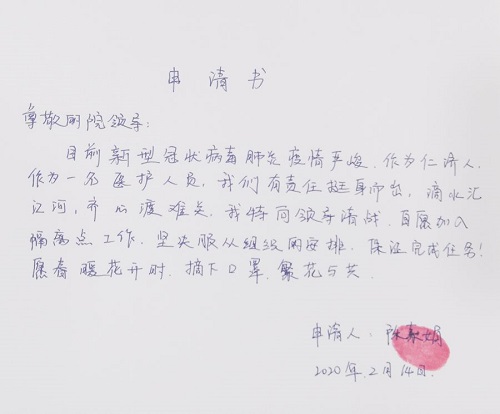 申请书
尊敬的院领导:
目前新型冠状病毒肺炎疫情严峻.作为仁济人.
作为一名医护人员,我们有责任挺身而出,滴水汇
江河,齐心渡难关.我特向领导请战,自愿加入
隔离点工作.坚决服从组织的安排.保证完成任务!
愿春暖花开时.摘下口罩.繁花与共.
申请人:陈 娟
2020年.2月14日.